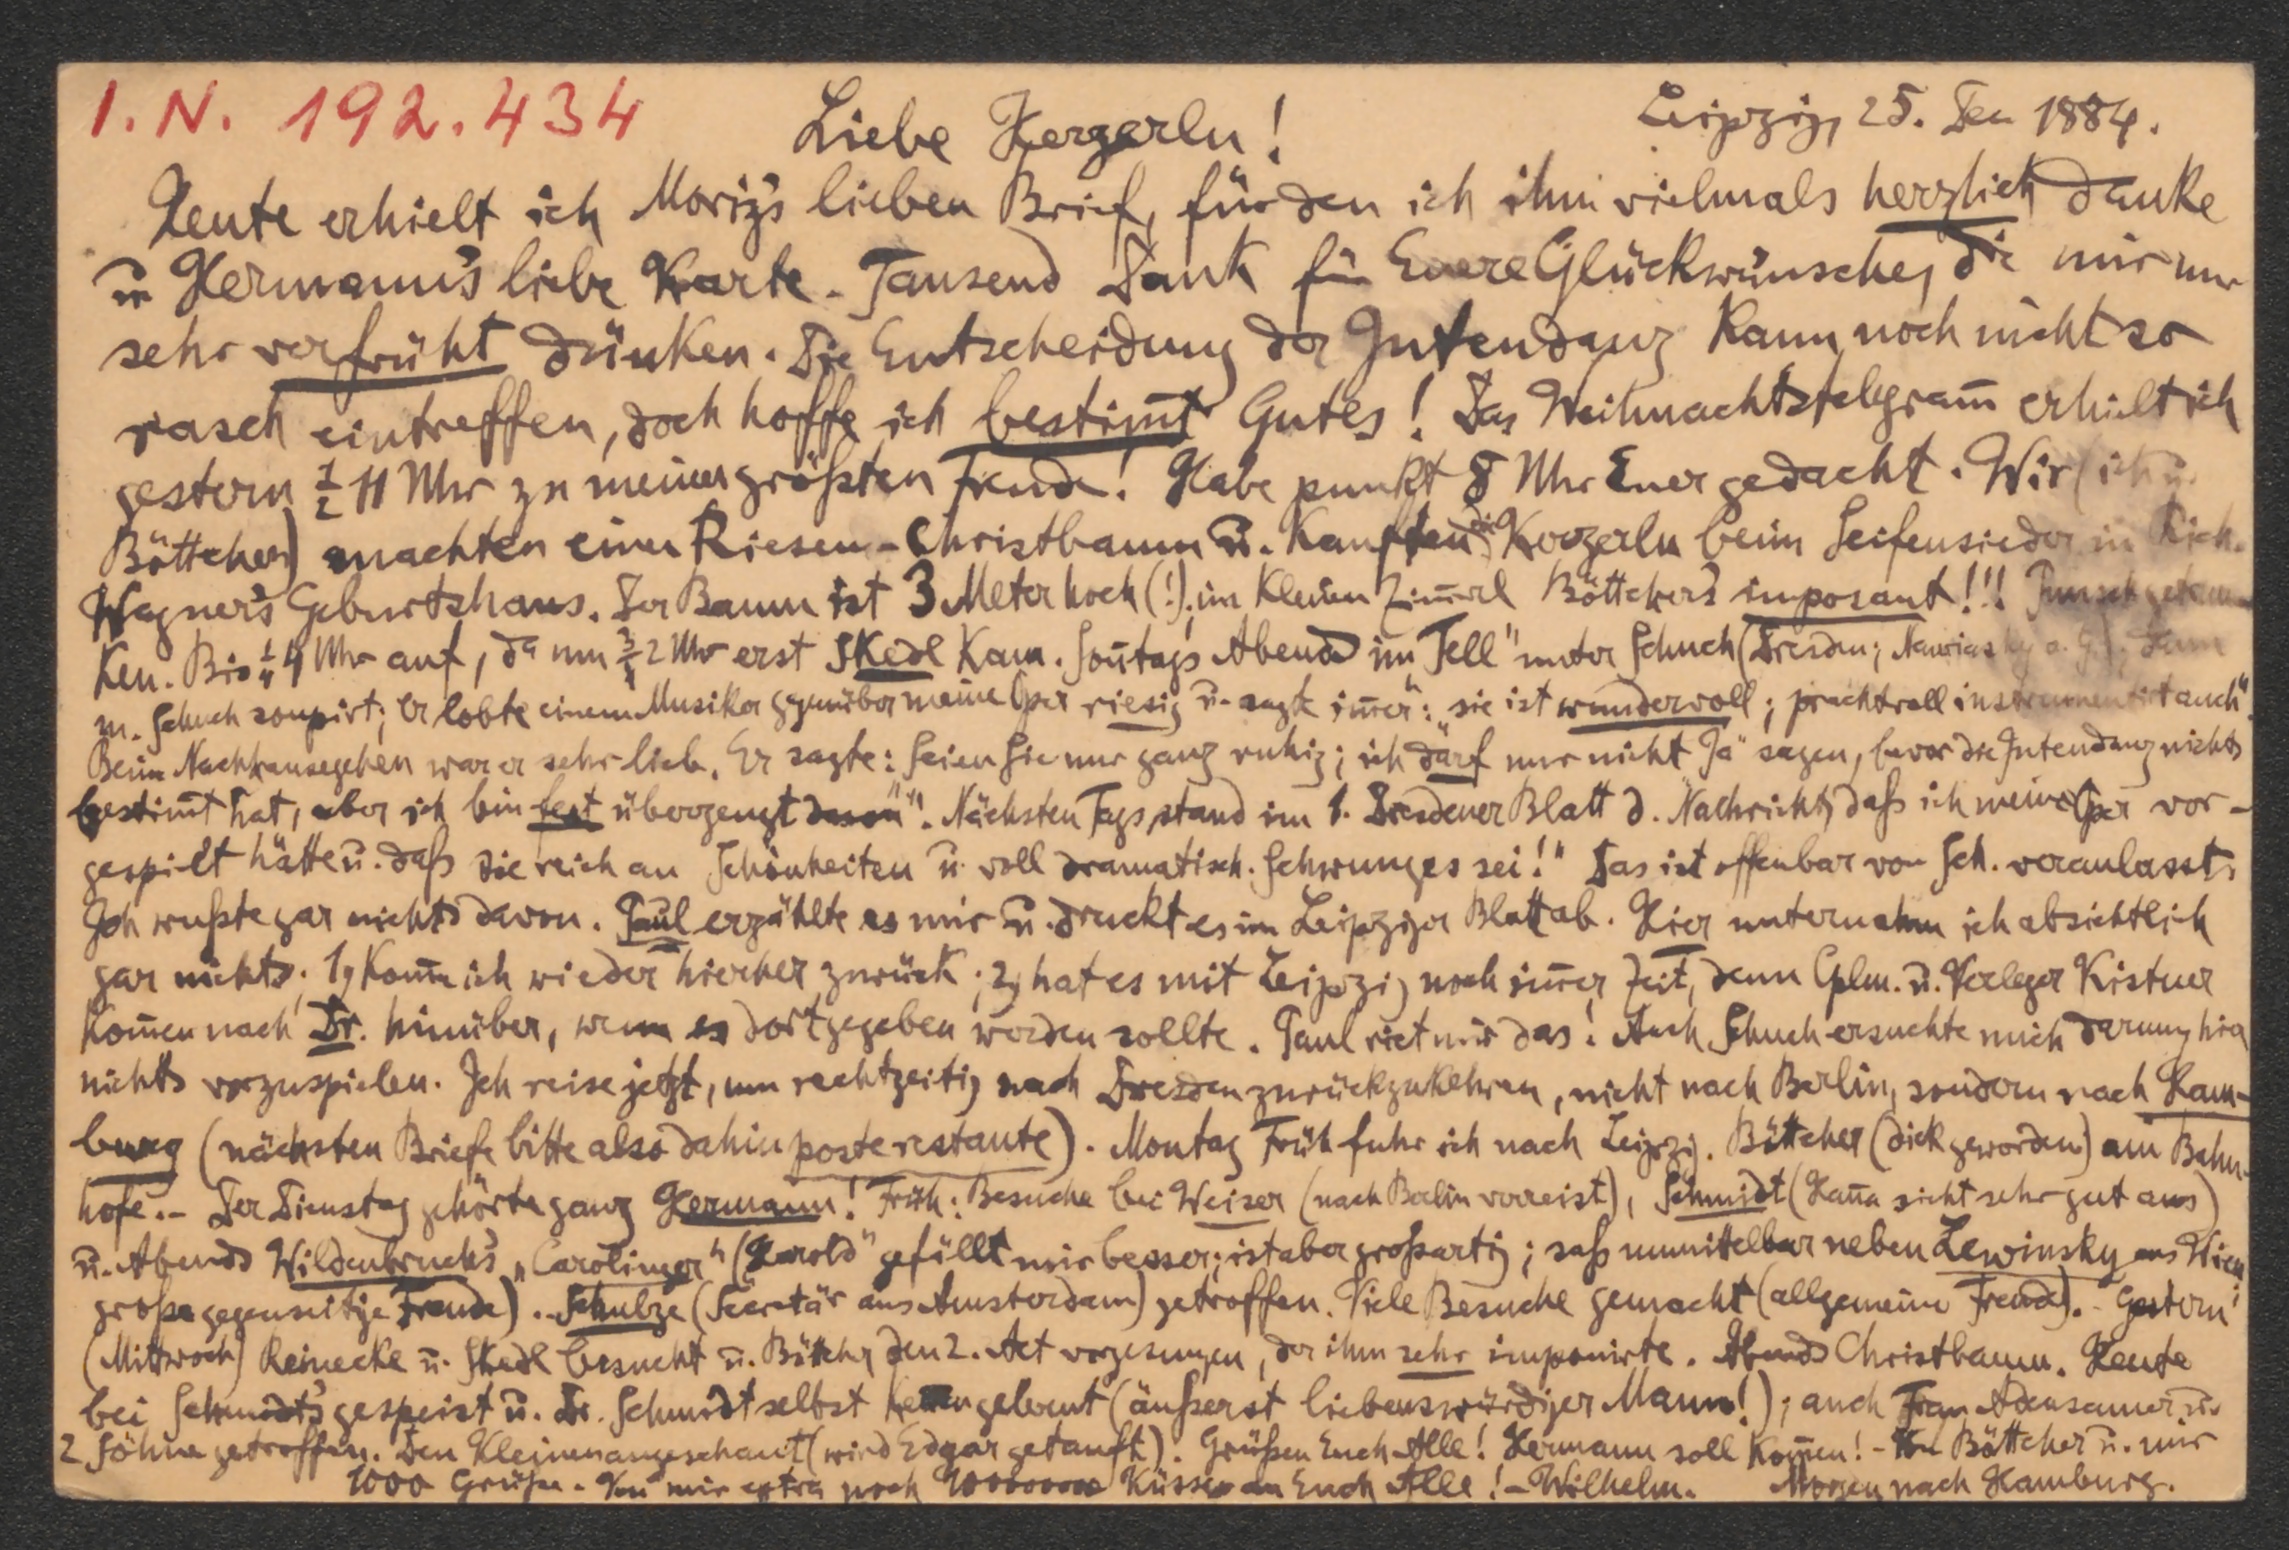 I. N. 192.434
Liebe Herzerln!
Leipzig, 25. Dec 1884.
Heute erhielt ich Moriz's lieben Brief, für den ich ihm vielmals herzlich danke
u. Hermann's liebe Karte. Tausend Dank für Euere Glückwünsche, die mir nur
sehr verfrüht dünken. Die Entscheidung der Intendanz kann noch nicht so
rasch eintreffen, doch hoffe ich bestim̅t Gutes! Das Weihnachtstelegram̅ erhielt ich
gestern ½ 11 Uhr zu meiner größten Freude! Habe punkt 8 Uhr Euer gedacht. Wir (ich u.
Böttcher) machten einen Riesen-Christbaum u. kauften die Kerzerln beim Seifensieder in Rich.
Wagner's Geburtshaus. Der Baum ist 3 Meter hoch (!); im kleinen Zim̅erl Böttcher's imposant!!! Punsch getrun-
ken. Bis ¼ 4 Uhr auf, da um ¾ 2 Uhr erst Skedl kam. Son̅tag's Abend im "Tell" unter Schuch (Dresden; a. G.), dann
m. Schuch soupirt; er lobte einem Musiker gegenüber meine Oper riesig u. sagte im̅er: "sie ist wundervoll; prachtvoll instrumentirt auch".
Beim Nachhausegehen war er sehr lieb. Er sagte: Seien Sie nur ganz ruhig; ich darf nur nicht "Ja" sagen, bevor die Intendanz nichts
bestim̅t hat, aber ich bin fest überzeugt davon"! Nächsten Tags stand im 1. Dresdener Blatt d. Nachricht, daß ich meine Oper vor-
gespielt hätte u. daß die reich an Schönheiten u. voll dramatisch. Schwunges sei!" Das ist offenbar von Sch. veranlasst.
Ich wußte gar nichts davon. Paul erzählte es mir u. druckt es im Leipziger Blatt ab. Hier unternahm ich absichtlich
gar nichts; 1, kom̅e ich wieder hierher zurück; 2, hat es mit Leipzig noch im̅er Zeit, denn Cplm. u. Verleger Kistner
kom̅en nach Dr. hinüber, wenn es dort gegeben werden sollte. Paul riet mir das! Auch Schuch ersuchte mich darum, hier
nichts vorzuspielen. Ich reise jetzt, um rechtzeitig nach Dresden zurückzukehren, nicht nach Berlin, sondern nach Ham-
burg (nächsten Briefe bitte also dahin poste restante). Montag Früh fuhr ich nach Leipzig. Böttcher (dick geworden) am Bahn-
hofe. - Der Dienstag gehörte ganz Hermann! Früh: Besuche bei Weiser (nach Berlin verreist), Schmidt (Han̅a sieht sehr gut aus)
u. Abends Wildenbruch's "Carolinger" (Harold" gefällt mir besser; ist aber großartig; saß unmittelbar neben Lewinsky aus Wien
große gegenseitige Freude). - Schulze (Secretär aus Amsterdam) getroffen. Viele Besuche gemacht (allgemeine Freude). - Gestern
(Mittwoch) Reinecke u. Skedl besucht u. Böttcher den 2. Act vorgesungen, der ihm sehr imponirte. Abends Christbaum. Heute
bei Schmidt's gespeist u. Dr. Schmidt selbst kennen gelernt (äußerst liebenswürdiger Mann!); auch Frau Adensamer u.
2 Söhne getroffen. Den Kleinen angeschaut (wird Edgar getauft). Grüßen Euch Alle! Hermann soll kom̅en! - Von Böttcher u. mir
1000 Grüße. Von mir extra noch Küsse an Euch Alle! - Wilhelm. Morgen nach Hamburg.